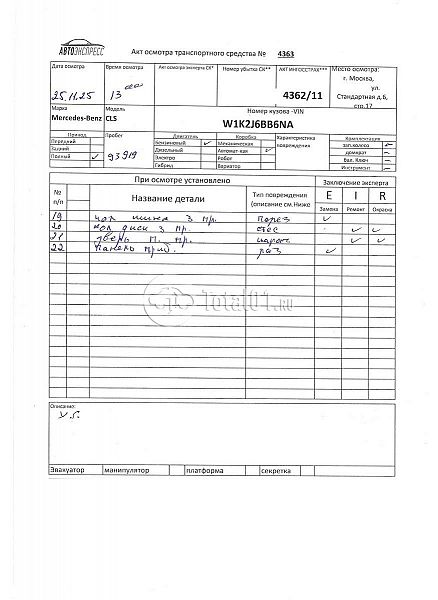 АВТОЭКСПРЕСС
Акт осмотра транспортного средства № 4363
Дата осмотра Время осмотра Акт осмотра эксперта СК* Номер убытка СК** АКТ ИНГОССТРАХ*** Место осмотра:
г. Москва,
ул.
25.11.25 13 00 4362/11 Стандартная д.6,
стр.17
Марка Модель Номер кузова -VIN
Mercedes-Benz CLS W1K2J6BB6NA
Привод Пробег Двигатель Коробка Характеристика повреждения Комплектация
Передний Бензиновый ✓ Механическая зап.колесо
Задний Дизельный Автомат-кая ✓ домкрат
Полный ✓ 93919 Электро Робот Бал. Ключ
Гибрид Вариатор Инструмент
При осмотре установлено Заключение эксперта
№ п/п Название детали Тип повреждения (описание см.Ниже E I R
Замена Ремонт Окраска
19 кол шина з пр. порез ✓
20 кол диск з пр. ✓ ✓
21 дверь п. пр. ✓ ✓
22 панель приб. раз ✓
Total01.ru
Описание:
У.г.
Эвакуатор манипулятор платформа секретка